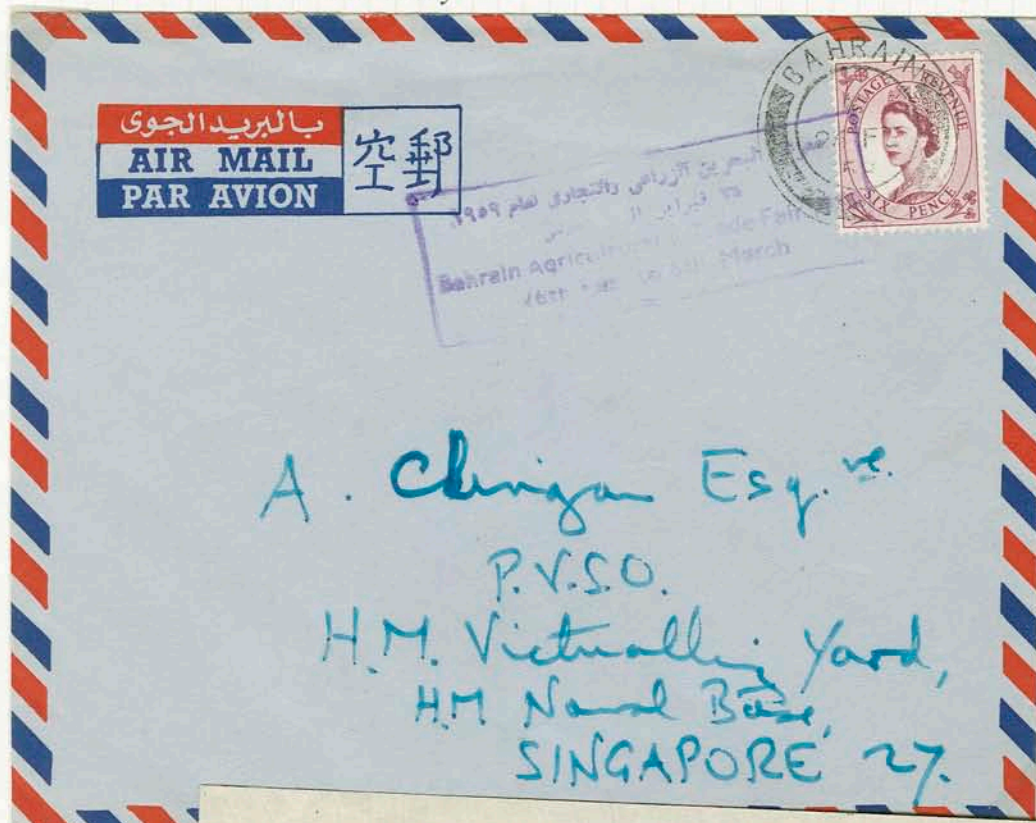 بالبريد الجوى
AIR MAIL
PAR AVION
空郵
BAHRAIN
POSTAGE REVENUE
SIX PENCE
البحرين الزراعى والتجارى لعام ١٩٥٩
٢٥ فبراير
Bahrain Agricultural Trade Fair
March
A. Esq.re.
P.V.S.O.
H.M. Victualling Yard,
H.M Naval Base,
SINGAPORE 27.